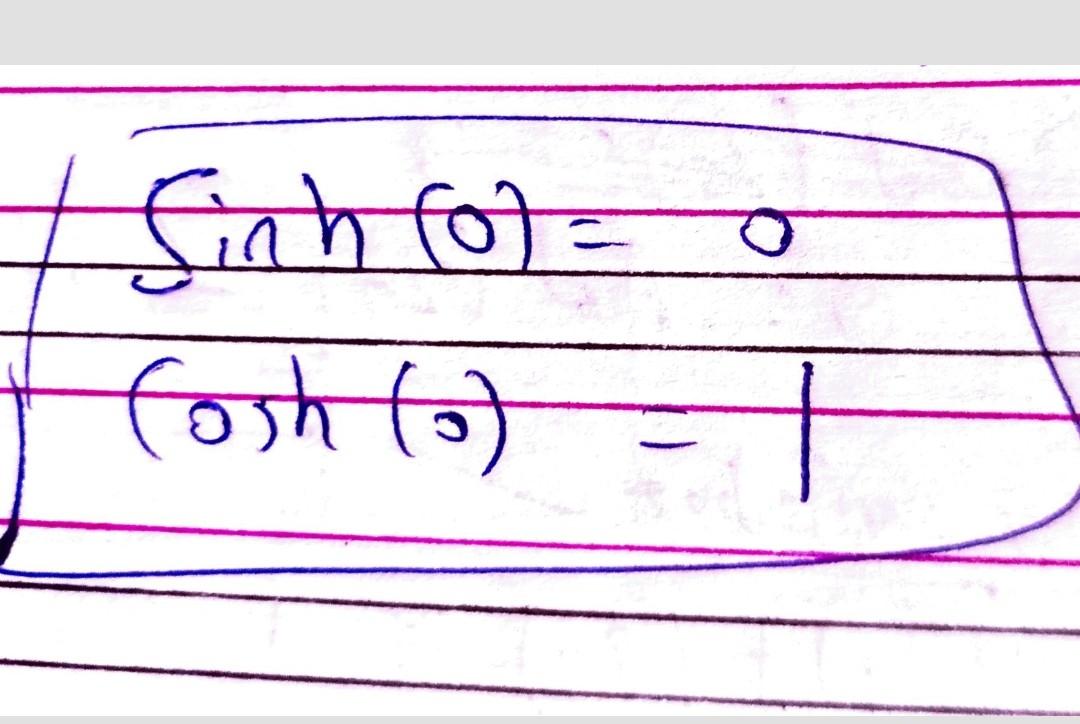 Sinh (0) = 0
Cosh (0) = 1